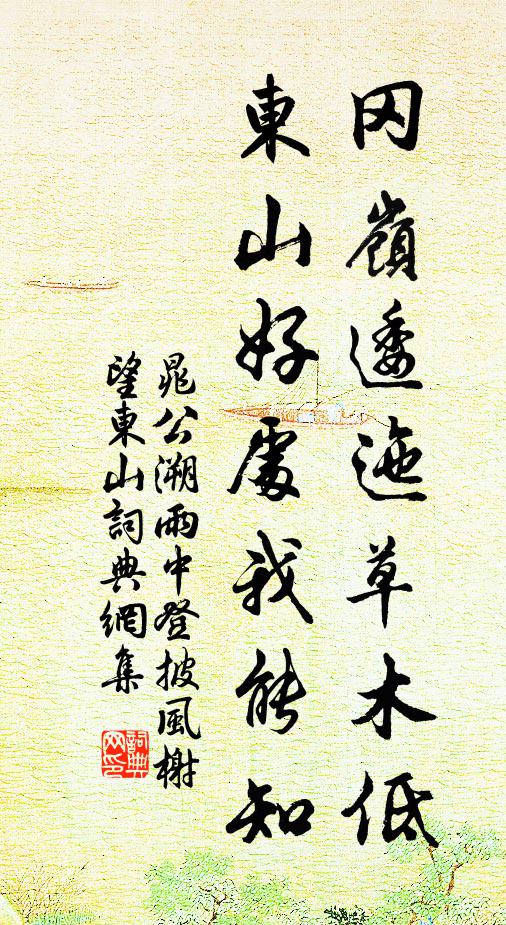 冈嶺逶迤草木低
東山好處我能知
晁公溯雨中登披風榭
望東山詞典網集
詞典
网印